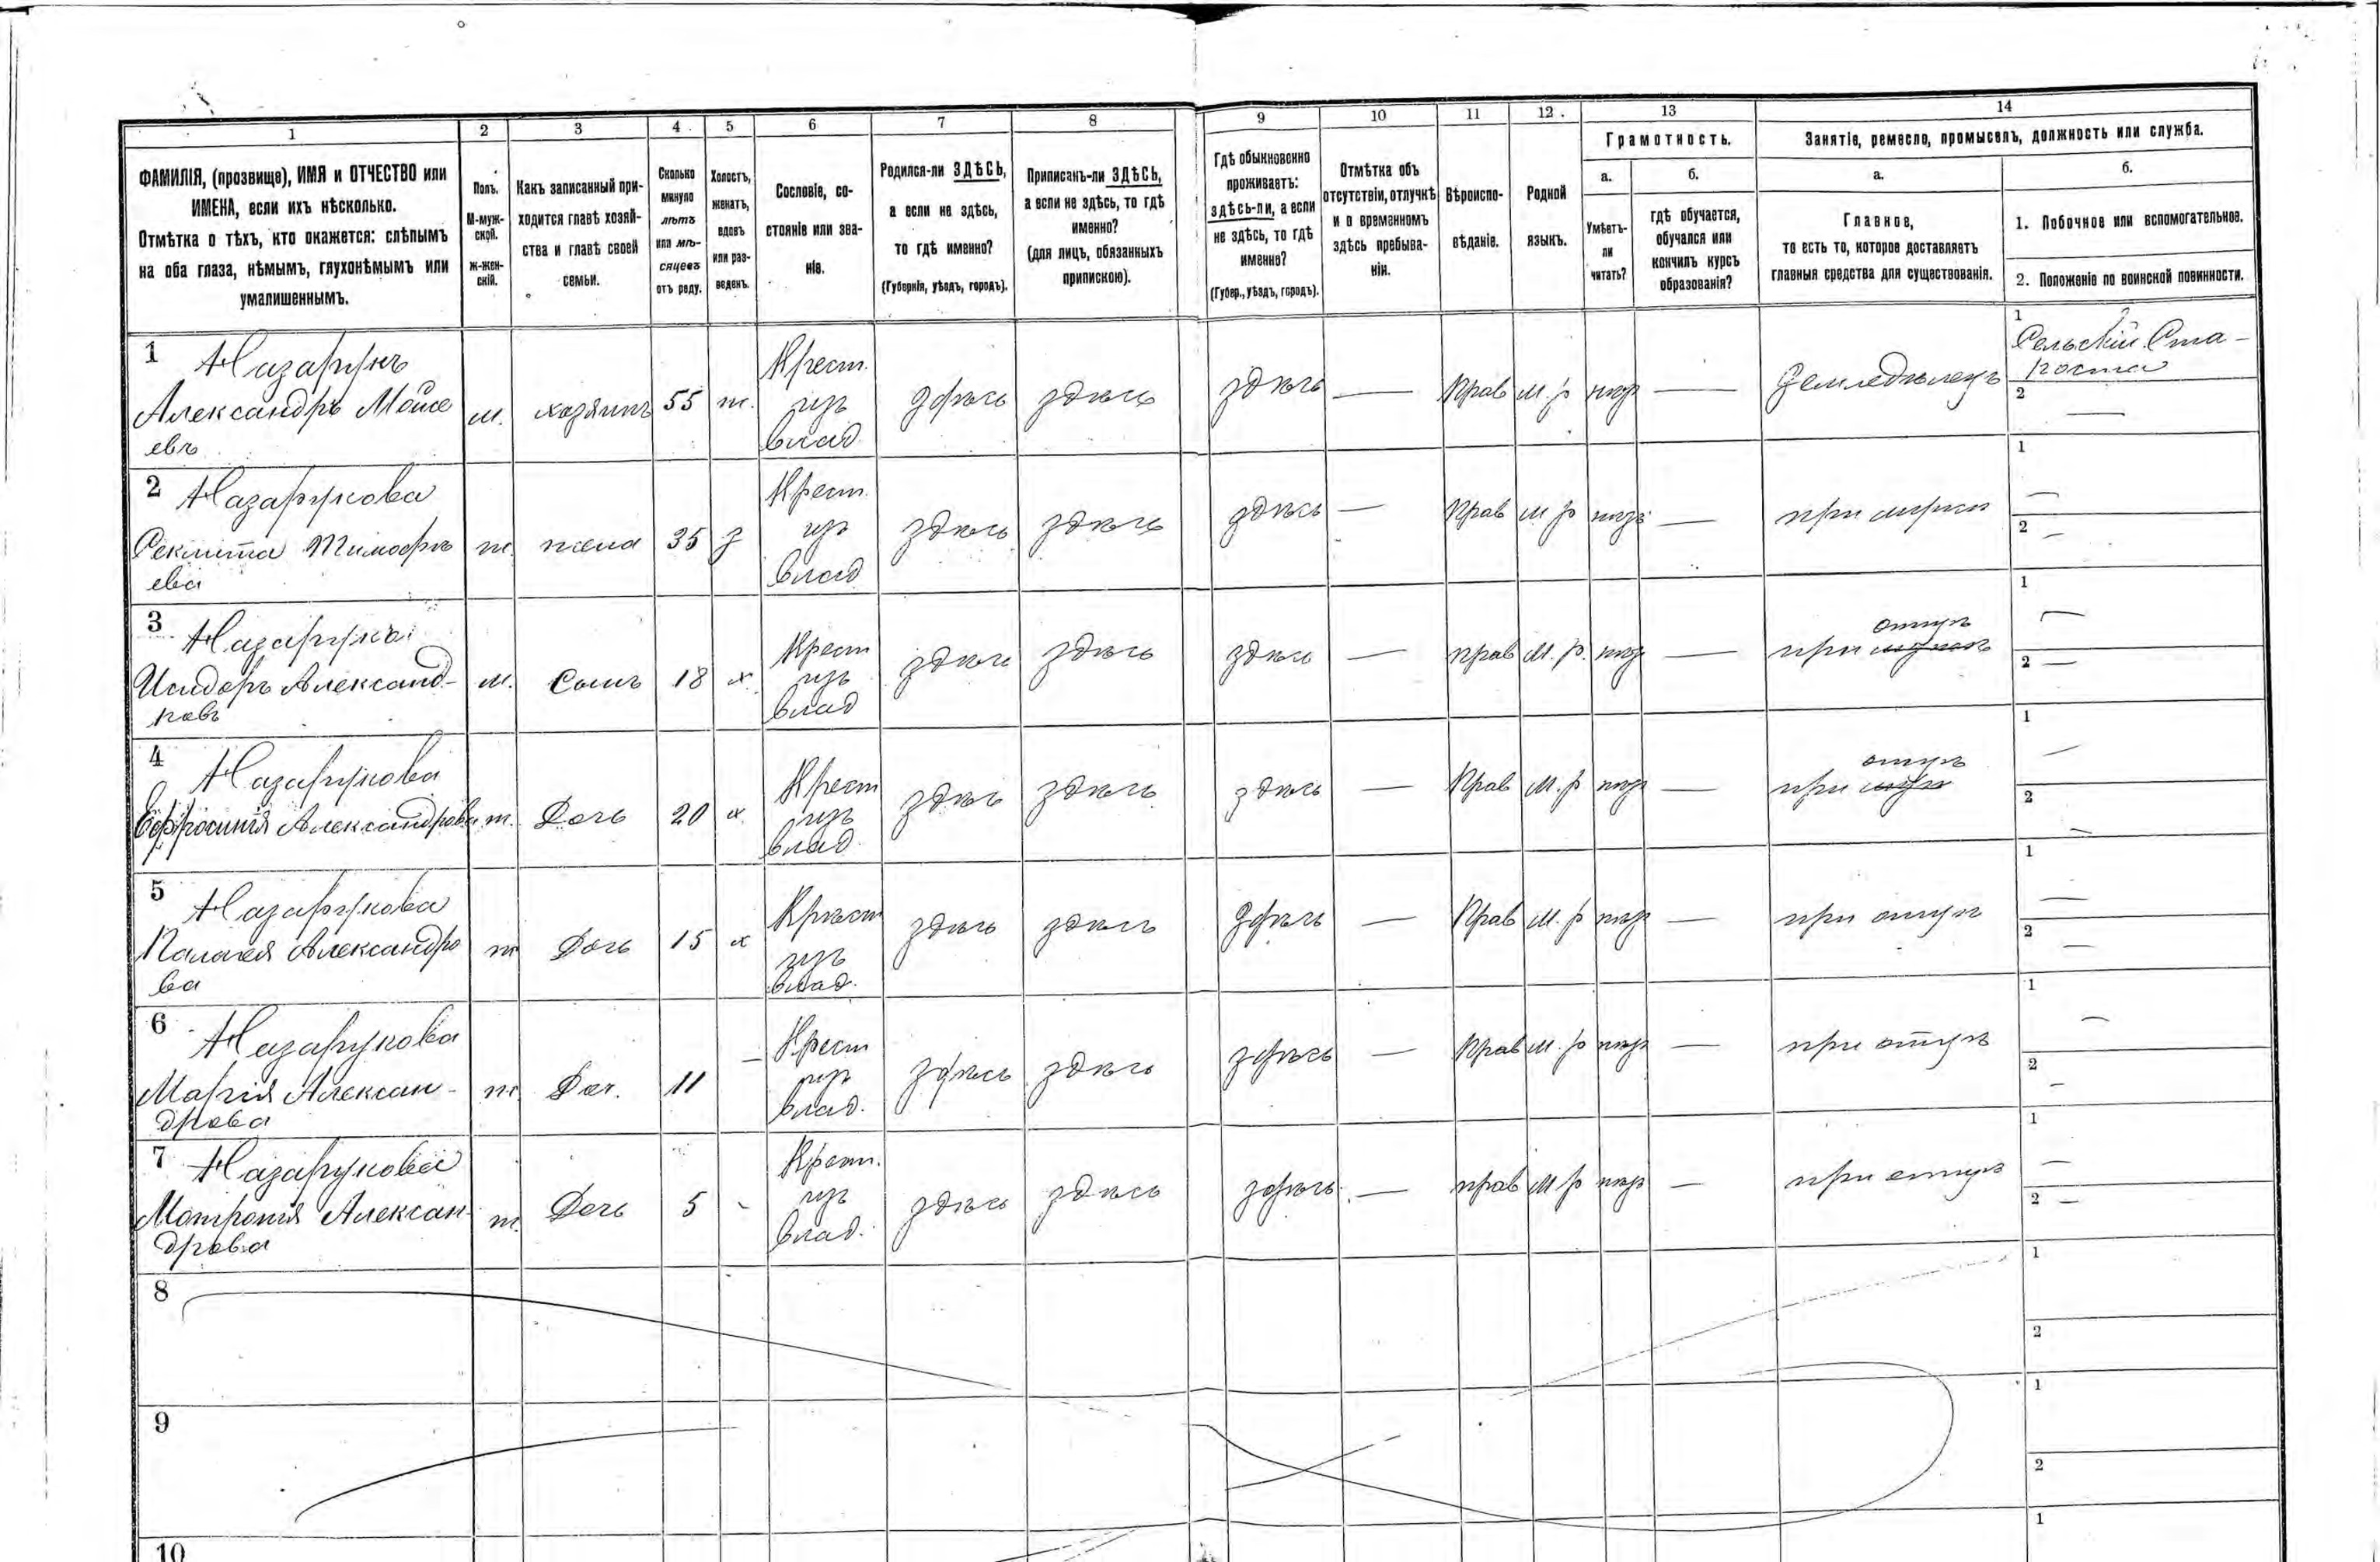 1 2 3 4 5 6 7 8 9 10 11 12. 13 14
ФАМИЛІЯ, (прозвище), ИМЯ и ОТЧЕСТВО или
ИМЕНА, если ихъ нѣсколько.
Отмѣтка о тѣхъ, кто окажется: слѣпымъ
на оба глаза, нѣмымъ, глухонѣмымъ или
умалишеннымъ.
Полъ.
М-муж-
ской.
Ж-жен-
скій.
Какъ записанный при-
ходится главѣ хозяй-
ства и главѣ своей
семьи.
Сколько
минуло
лѣтъ
или мѣ-
сяцевъ
отъ роду.
Холостъ,
женатъ,
вдовъ
или раз-
веденъ.
Сословіе, со-
стояніе или зва-
ніе.
Родился-ли ЗДѢСЬ,
а если не здѣсь,
то гдѣ именно?
(Губернія, уѣздъ, городъ).
Приписанъ-ли ЗДѢСЬ,
а если не здѣсь, то гдѣ
именно?
(для лицъ, обязанныхъ
припискою).
Гдѣ обыкновенно
проживаетъ:
здѣсь-ли, а если
не здѣсь, то гдѣ
именно?
(Губер., уѣздъ, городъ).
Отмѣтка объ
отсутствіи, отлучкѣ
и о временномъ
здѣсь пребыва-
ніи.
Вѣроиспо-
вѣданіе.
Родной
языкъ.
Грамотность.
а.
Умѣетъ-
ли
читать?
б.
гдѣ обучается,
обучался или
кончилъ курсъ
образованія?
Занятіе, ремесло, промыселъ, должность или служба.
а.
Главное,
то есть то, которое доставляетъ
главныя средства для существованія.
б.
1. Побочное или вспомогательное.
2. Положеніе по воинской повинности.
1 Назарукъ
Александръ Моисе
евъ
м. хозяинъ 55 ж.
Крест.
изъ
влад.
здѣсь здѣсь здѣсь — Прав м. р — Земледѣлецъ
1 Сельскій Ста-
роста
2 —
2 Назарукова
Тимофѣ
ева
ж. жена 35 з
Крест.
изъ
влад
здѣсь здѣсь здѣсь — Прав м р — при мужѣ
1 —
2 —
3 Назарукъ
Исидоръ Александ-
ровъ
м. Сынъ 18 х
Крест
изъ
влад
здѣсь здѣсь здѣсь — прав м. р. —
отцѣ
при мужѣ
1 —
2 —
4 Назарукова
Ефросинія Александрова
ж. Дочь 20 х
Крест
изъ
влад.
здѣсь здѣсь здѣсь — Прав м. р —
отцѣ
при
1 —
2 —
5 Назарукова
Палагея Александро
ва
ж Дочь 15 х
Крест
изъ
влад.
здѣсь здѣсь здѣсь — Прав м. р — при отцѣ
1 —
2 —
6 Назарукова
Марія Алексан-
дрова
ж Доч. 11 —
Крест
изъ
влад.
здѣсь здѣсь здѣсь — Прав м. р — при отцѣ
1 —
2 —
7 Назарукова
Матронія Алексан
дрова
ж. Дочь 5 -
Крест.
изъ
влад.
здѣсь здѣсь здѣсь — прав м р — при отцѣ
1 —
2 —
8
1
2
9
1
2
10
1